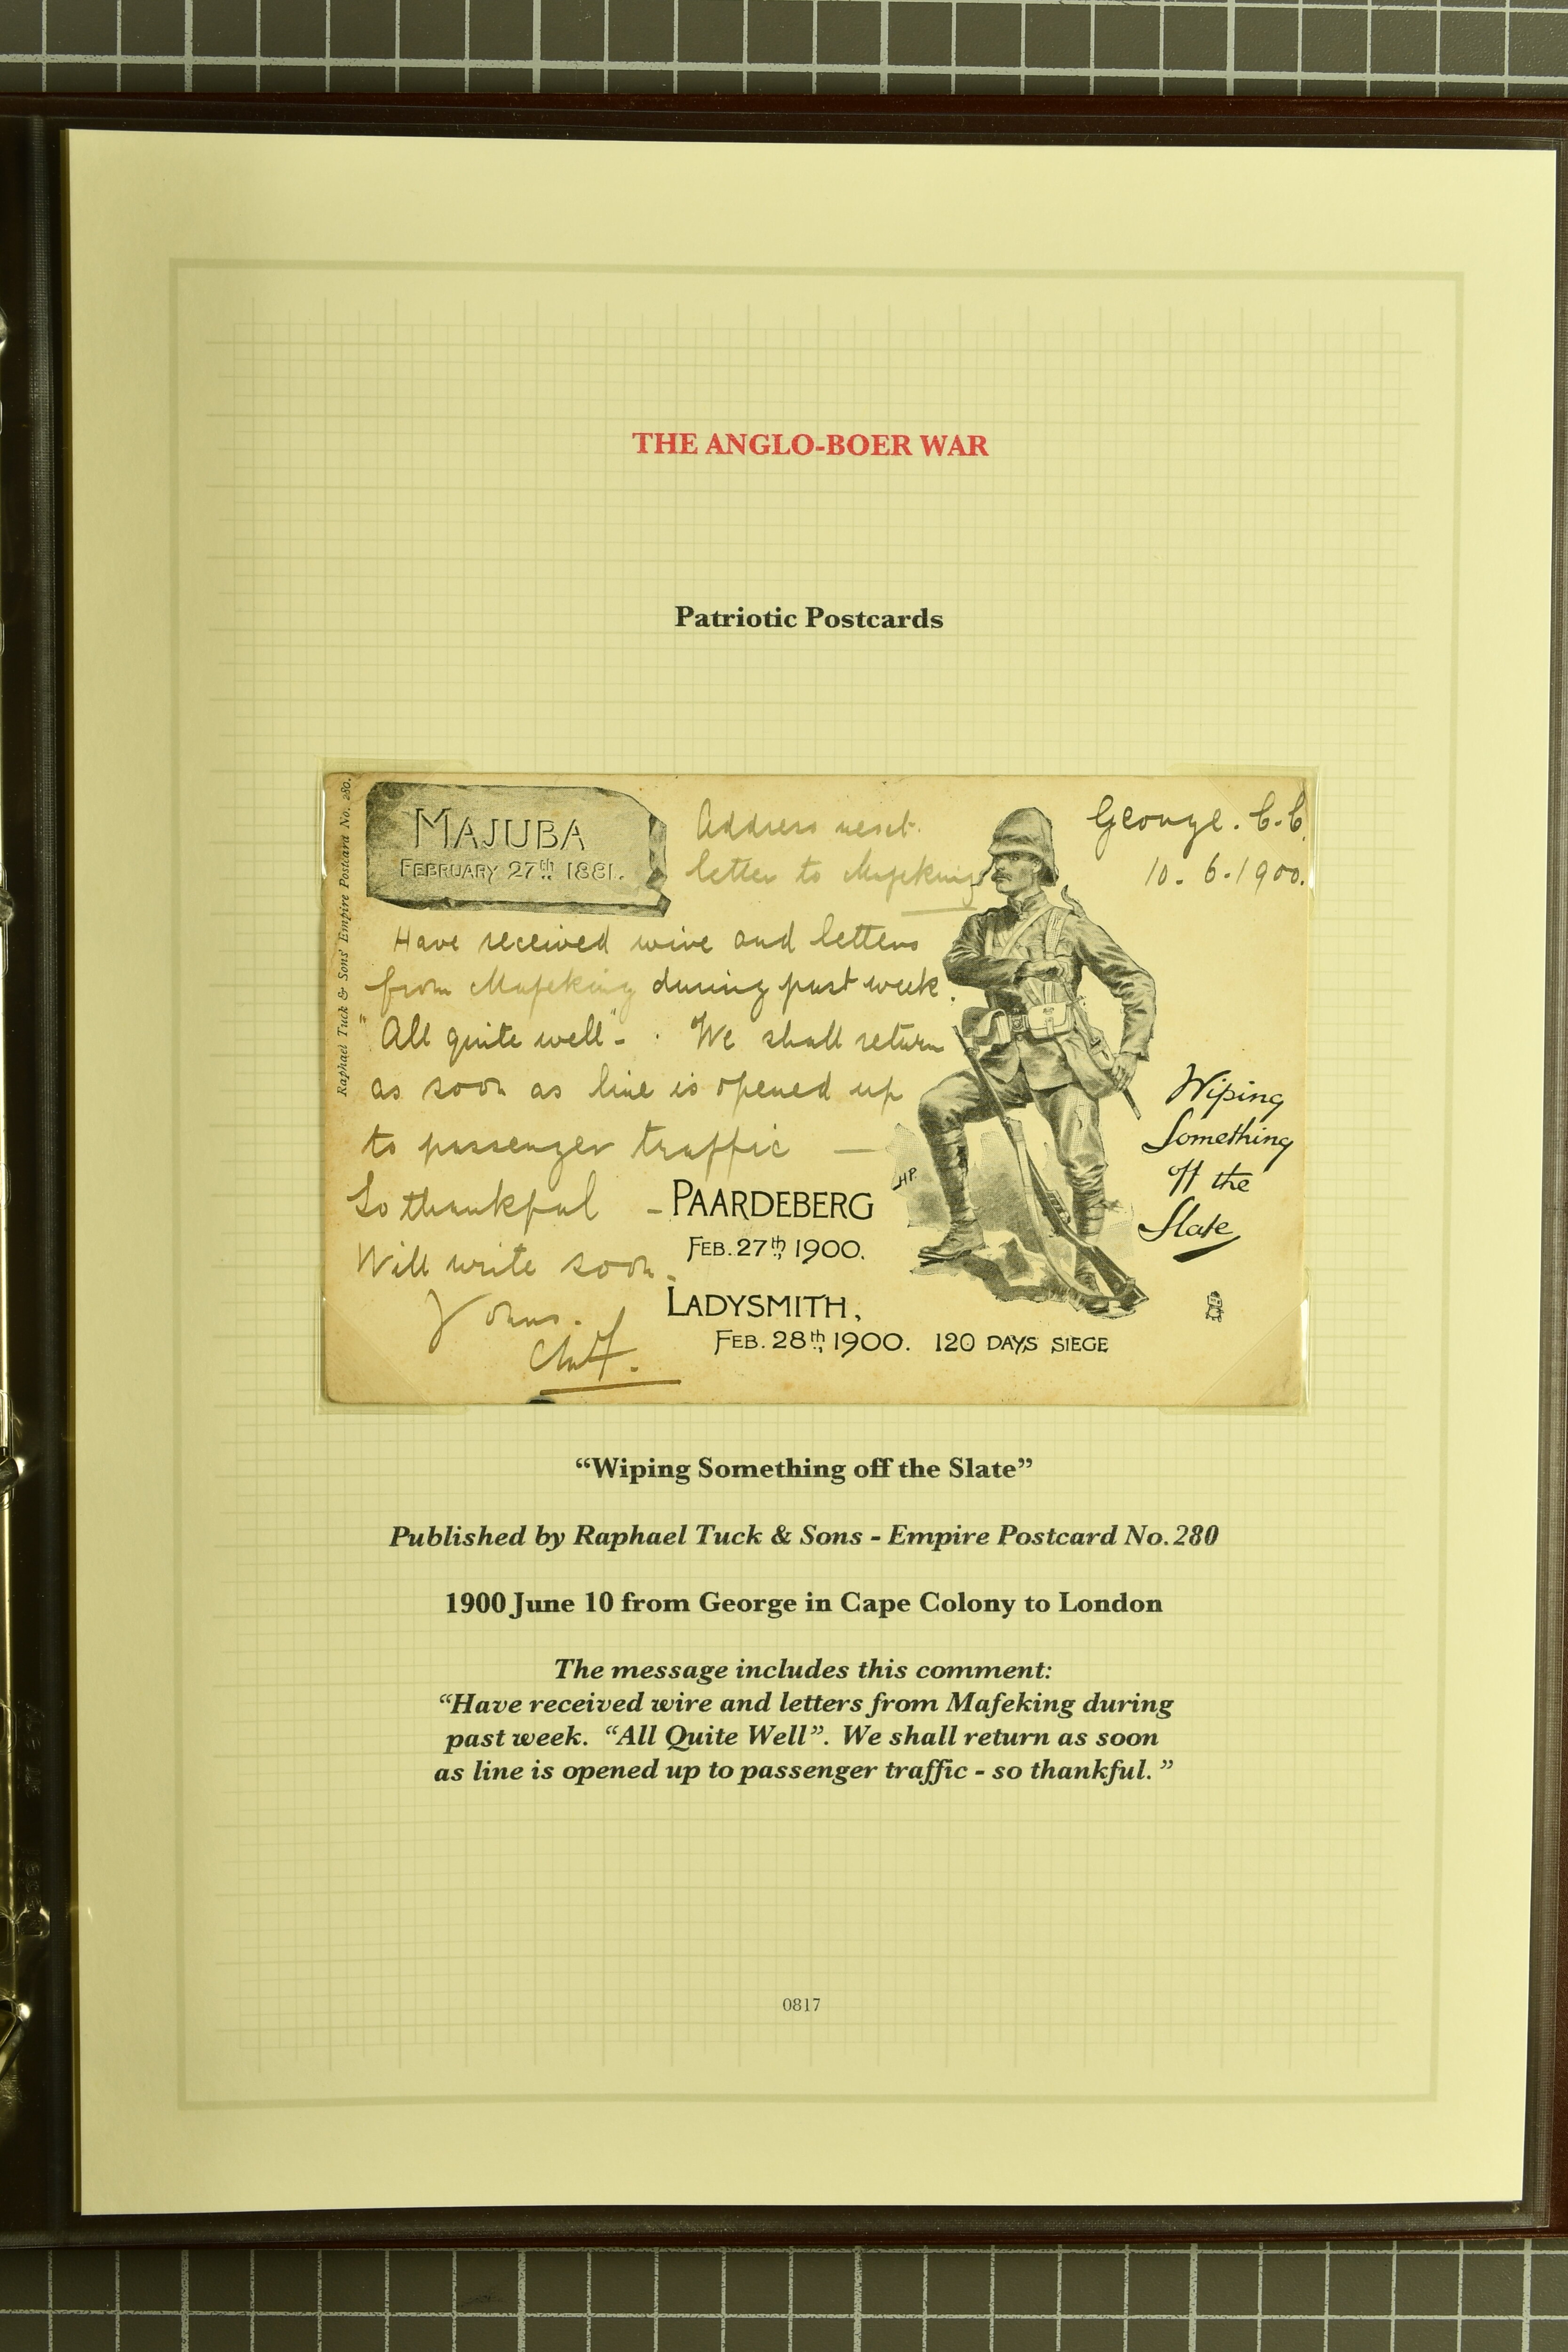 THE ANGLO-BOER WAR
Patriotic Postcards
Raphael Tuck & Sons' Empire Postcard No. 280.
MAJUBA
FEBRUARY 27th 1881.
Address next
letter to Mafeking
George. C.C.
10. 6. 1900.
Have received wire and letters
from Mafeking during past week.
"All quite well". We shall return
as soon as line is opened up
to passenger traffic —
So thankful —
Will write soon.
Yours.
PAARDEBERG
FEB. 27th 1900.
LADYSMITH,
FEB. 28th, 1900. 120 DAYS SIEGE
HP.
Wiping
Something
off the
Slate
“Wiping Something off the Slate”
Published by Raphael Tuck & Sons - Empire Postcard No.280
1900 June 10 from George in Cape Colony to London
The message includes this comment:
“Have received wire and letters from Mafeking during
past week. “All Quite Well”. We shall return as soon
as line is opened up to passenger traffic - so thankful.”
0817